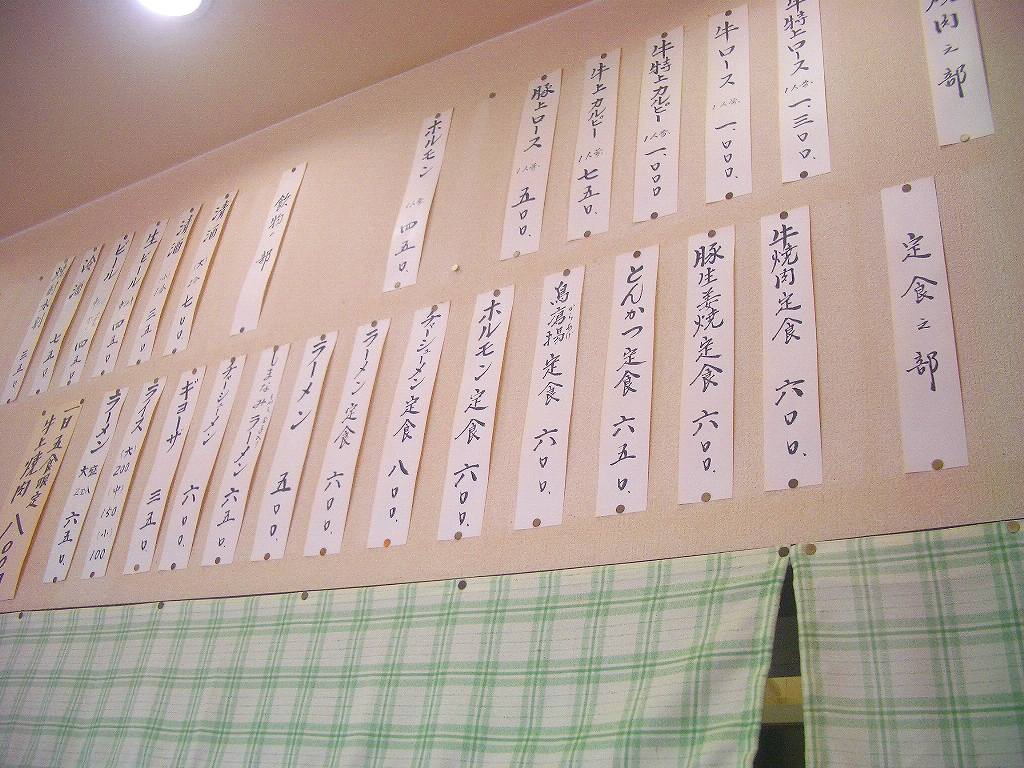 焼肉之部
牛特上ロース 1人分 一、三〇〇
牛ロース 1人分 一、〇〇〇
牛特上カルビー 1人分 一、〇〇〇
牛上カルビー 1人分 七五〇、
豚上ロース 1人分 五〇〇、
ホルモン 1人分 四五〇、
飲物之部
清酒 大
清酒 小 七〇〇
生ビール 三五〇
ビール 四五〇
冷酒 四五〇
七五〇
三五〇
定食之部
牛焼肉定食 六〇〇、
豚生姜焼定食 六〇〇、
とんかつ定食 六五〇、
鳥唐揚定食 六〇〇、
ホルモン定食 六〇〇、
チャーシューメン定食 八〇〇、
ラーメン定食 六〇〇、
ラーメン 五〇〇、
ラーメン 六五〇、
チャーシューメン 六〇〇、
ギョーザ 三五〇
ライス (大)200 (中)150 (小)100
ラーメン 大盛 六五〇、
一日五食限定
牛上焼肉 八〇〇円